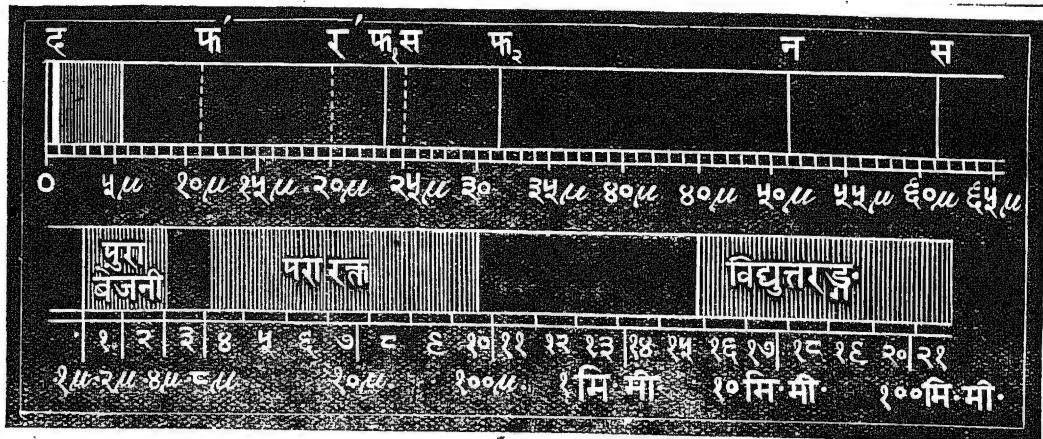 द फं रं फ₁ स फ₂ न स
० ५μ १०μ १५μ २०μ २५μ ३० ३५μ ४०μ ४०μ ५०μ ५५μ ६०μ ६५μ
पुरा परा रक्त विद्युत्तरङ्ग
बैजनी
१ २ ३ ४ ५ ६ ७ ८ ९ १० ११ १२ १३ १४ १५ १६ १७ १८ १९ २० २१
१μ २μ ४μ ८μ २०μ १००μ १ मि मी १० मि मी १०० मि मी